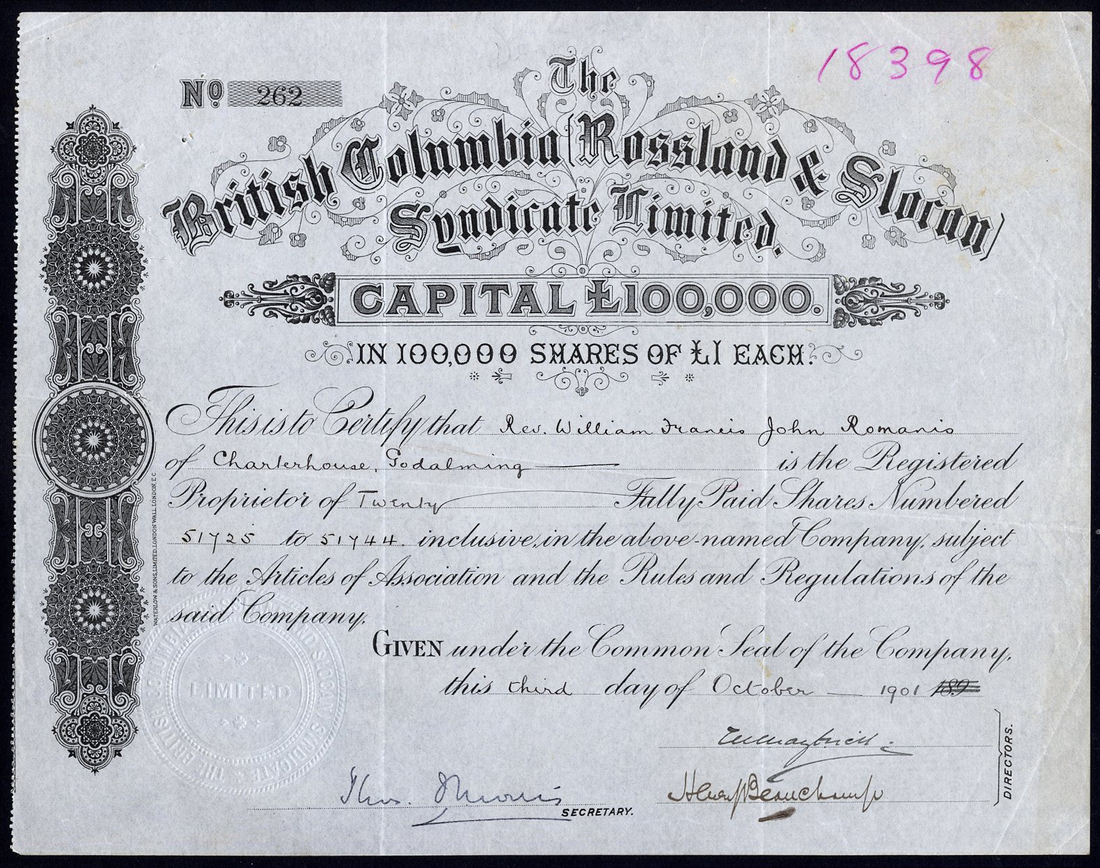 18398
Nº 262
The
British Columbia (Rossland & Slocan)
Syndicate Limited.
CAPITAL £100,000.
IN 100,000 SHARES OF £1 EACH.
This is to Certify that Rev. William Francis John Romanis
of Charterhouse, Godalming is the Registered
Proprietor of Twenty Fully Paid Shares Numbered
51725 to 51744 inclusive, in the above-named Company, subject
to the Articles of Association and the Rules and Regulations of the
said Company.
GIVEN under the Common Seal of the Company,
this third day of October 1901 189
Thos. Morris
SECRETARY.
Beauchamp
DIRECTORS.
WATERLOW & SONS LIMITED, LONDON WALL, LONDON E.C.
LIMITED